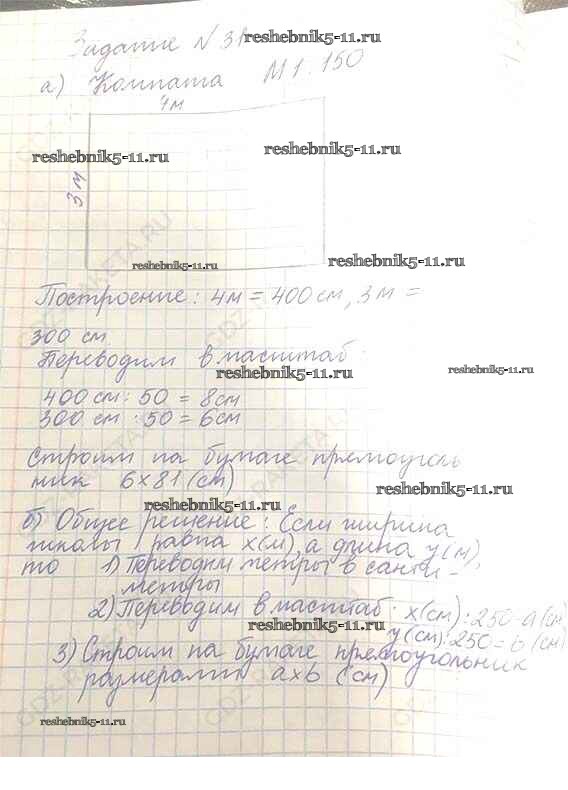 Задание N 31
reshebnik5-11.ru
а) Комната М 1:150
4м
reshebnik5-11.ru
reshebnik5-11.ru
3 м
reshebnik5-11.ru
reshebnik5-11.ru
Построение: 4м = 400 см, 3м =
300 см
Переводим в масштаб.
reshebnik5-11.ru
reshebnik5-11.ru
400 см : 50 = 8 см
300 см : 50 = 6 см
Строим на бумаге прямоуголь
ник 6×81 (см)
reshebnik5-11.ru
reshebnik5-11.ru
б) Общее решение: Если ширина
школы равна х(м), а длина у(м),
то 1) Переводим метры в санти-
метры
2) Переводим в масштаб. х(см):250=а(см)
у(см):250=b(см)
reshebnik5-11.ru
3) Строим на бумаге прямоугольник
размерами a×b (см)
reshebnik5-11.ru
GDZ-RAKETA.RU